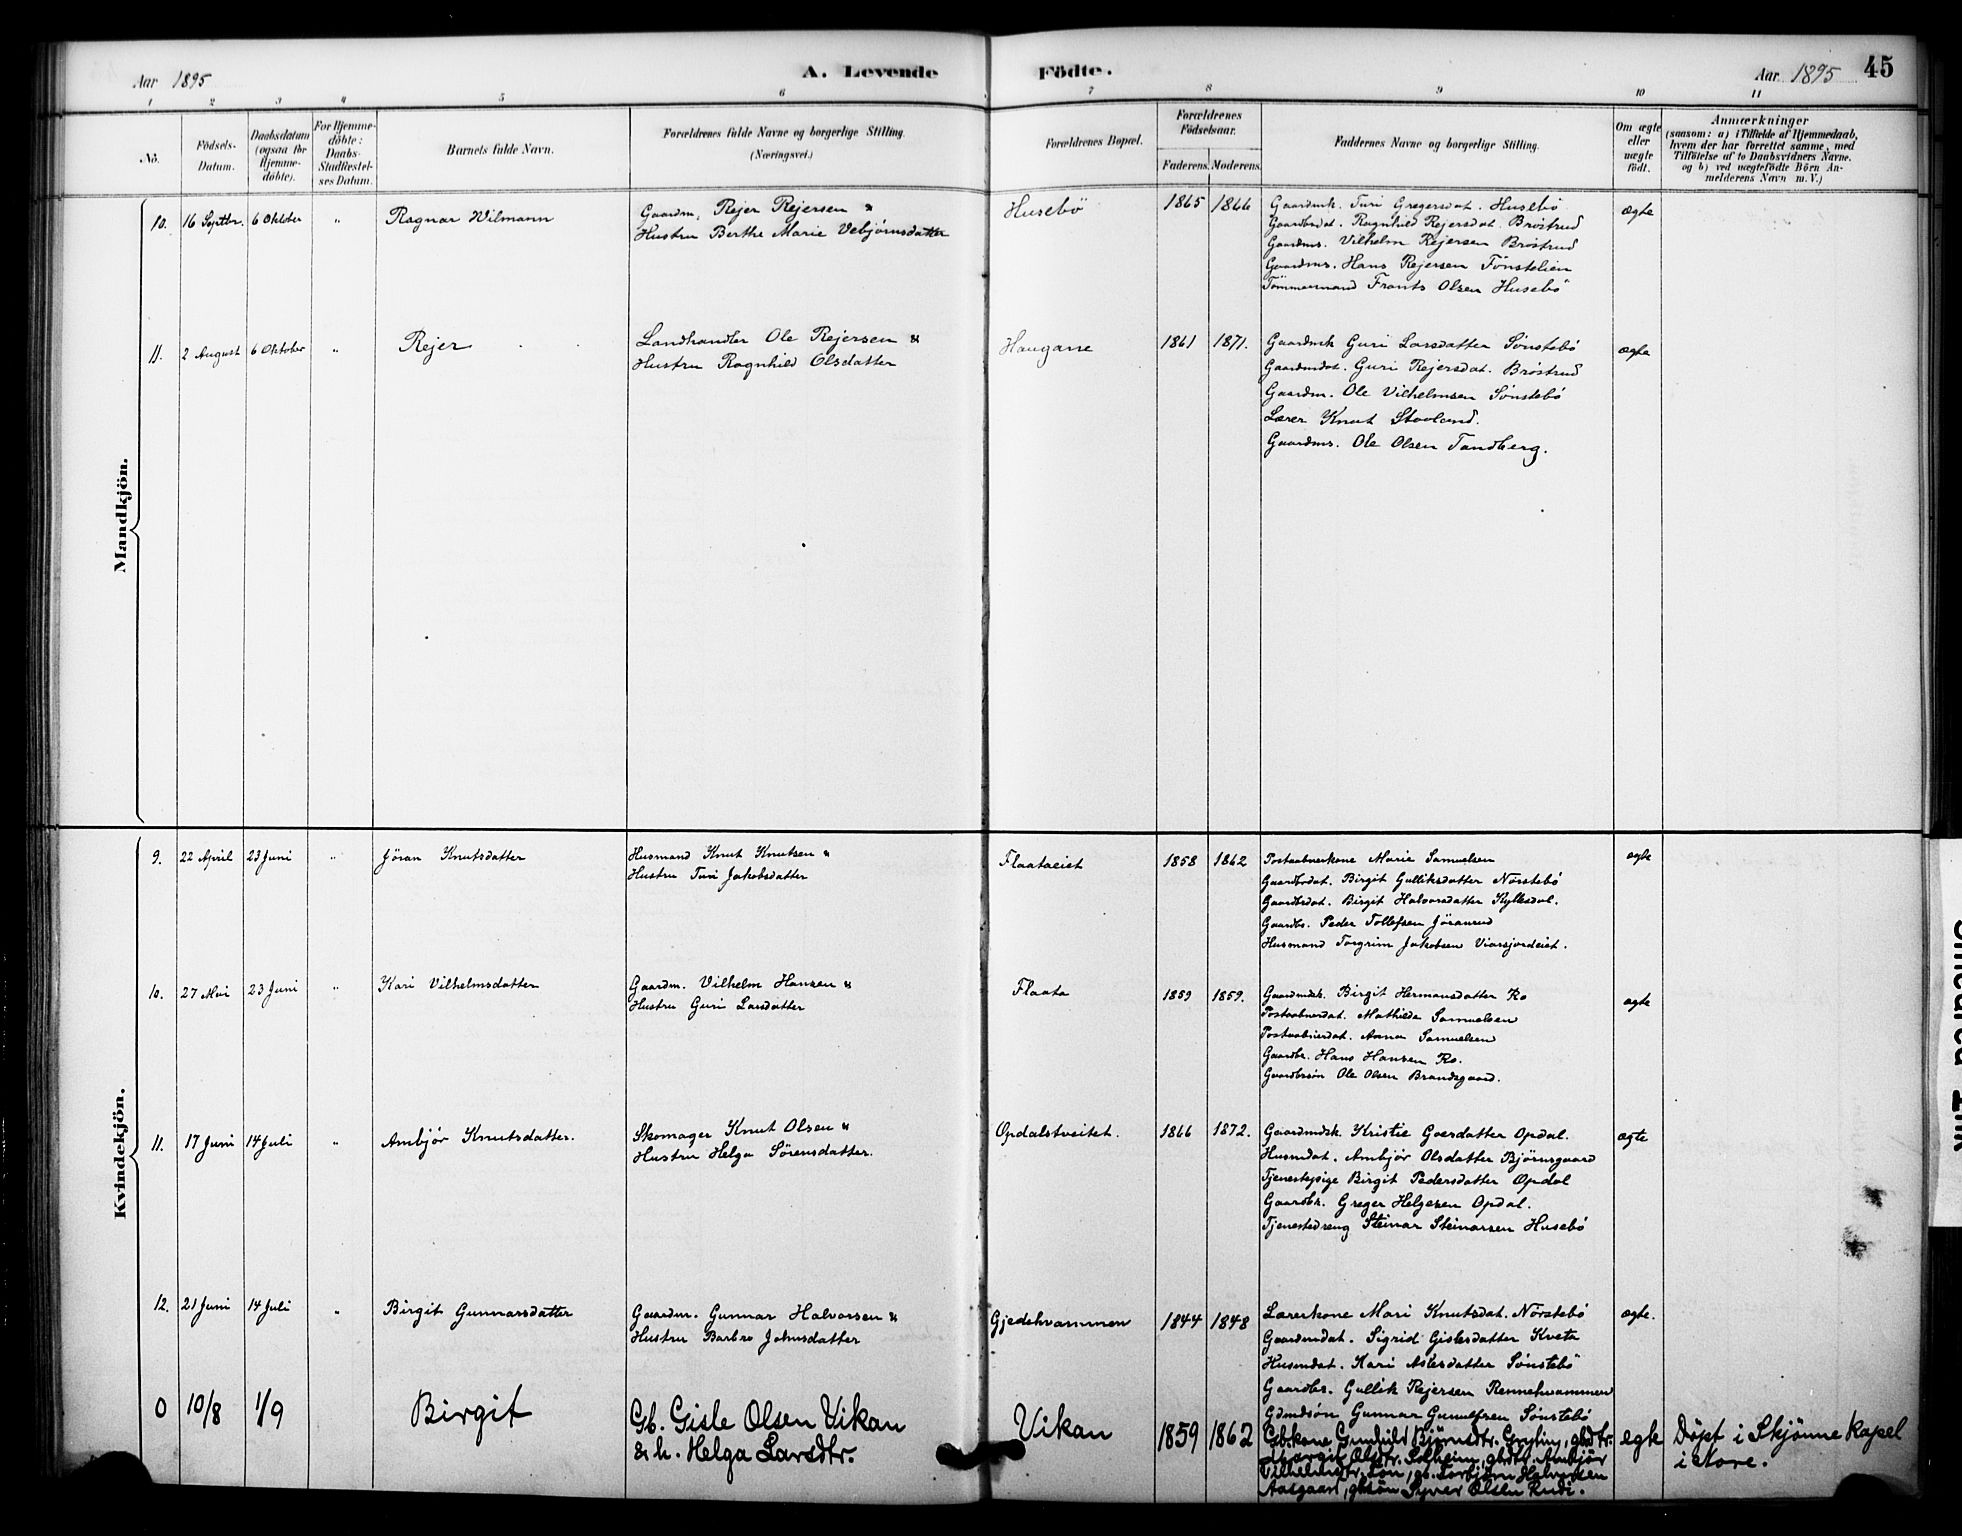 Aar 1895
A. Levende
Födte.
Aar 1895
45
1 2 3 4 5 6 7 8 9 10 11
No.
Födsels-Datum.
Daabsdatum (ogsaa for Hjemme-döbte).
For Hjemme-döbte: Daabs-Stadfæstel-ses Datum.
Barnets fulde Navn.
Forældrenes fulde Navne og borgerlige Stilling.
(Næringsvei.)
Forældrenes Bopæl.
Forældrenes Födselsaar.
Faderens. Moderens.
Faddernes Navne og borgerlige Stilling.
Om ægte eller uægte födt.
Anmærkninger
(saasom: a) i Tilfælde af Hjemmedaab, hvem der har forrettet samme, med Tilföielse af to Daabsvidners Navne. og b) ved uægtefödte Börn An-melderens Navn m. V.)
Mandkjön.
10. 16 Septbr. 6 Oktober " Ragnar Wilmann
Gaardm. Rejer Rejersen &
Hustru Berthe Marie Vebjørnsdatter
Husebö 1865 1866
Gaardmk. Turi Gregersdat. Husebö
Gaardbrdat. Ragnhild Rejersdat. Bröstrud
Gaardms. Vilhelm Rejersen Bröstrud
Gaardms. Hans Rejersen Tönstelien
Tömmermand Frants Olsen Husebö
ægte
11. 2 August 6 Oktober " Rejer
Landhandler Ole Rejersen &
Hustru Ragnhild Olsdatter
Haugane 1861 1871.
Gaardmk Guri Larsdatter Sönstebö
Gaardmdat. Guri Rejersdat. Bröstrud
Gaardm. Ole Vilhelmsen Sönstebö
Lærer Knut Stavland.
Gaardms. Ole Olsen Tandberg.
ægte
Kvindekjön.
9. 22 April 23 Juni " Jöran Knutsdatter
Husmand Knut Knutsen &
Hustru Turi Jakobsdatter
Flaataeiet 1858 1862
Postaabnerkone Marie Samuelsen
Gaardbrdat. Birgit Gulliksdatter Nörstebö
Gaardbrdat. Birgit Halvorsdatter
Gaardbr. Peder Tollefsen Jöranrud
Husmand Torgrim Jakobsen
ægte
10. 27 Mai 23 Juni " Kari Vilhelmsdatter
Gaardm. Vilhelm Hansen &
Hustru Guri Larsdatter
Flaata 1859 1859.
Gaardmk. Birgit Hermansdatter Ro
Postaabnerdat. Mathilde Samuelsen
Postaabnerdat. Anna Samuelsen
Gaardbr. Hans Hansen Ro.
Gaardbrsön Ole Olsen Brandsgaard.
ægte
11. 17 Juni 14 Juli " Ambjör Knutsdatter.
Skomager Knut Olsen &
Hustru Helga Sörensdatter.
Opdalstveitet. 1866 1872.
Gaardmk. Kristie Goesdatter Opdal.
Husmdat. Ambjör Olsdatter Björnsgaard
Tjenestepige Birgit Pedersdatter Opdal
Gaardbr. Greger Helgesen Opdal.
Tjenestedreng Steinar Steinarsen Husebö
ægte
12. 21 Juni 14 Juli " Birgit Gunnarsdatter
Gaardm. Gunnar Halvorsen &
Hustru Barbro Johnsdatter
Gjedshvammen 1844 1848
Lærerkone Mari Knutsdat. Nörstebö
Gaardmdat. Sigrid Gislesdatter Kveta
Husmdat. Kari Aslesdatter Sönstebö
Gaardbr. Gullik Rejersen Rennehvammen
Gdmdsön Gunnar Gunulfsen Sönstebö
ægte.
0 10/8 1/9 Birgit
Gb. Gisle Olsen Vikan
& h. Helga Larsdtr.
Vikan 1859 1862
Gb.kone Gunhild Björnsdtr. gbdtr.
Margit Olsdtr. Solheim, gbdtr. Ambjör
Vilhelmsdtr. gb. Torbjörn Halvorsen
Aasgaard, gbsön Syver Olsen Rudi.
egte
Döpt i Skjönne kapel
i Nore.